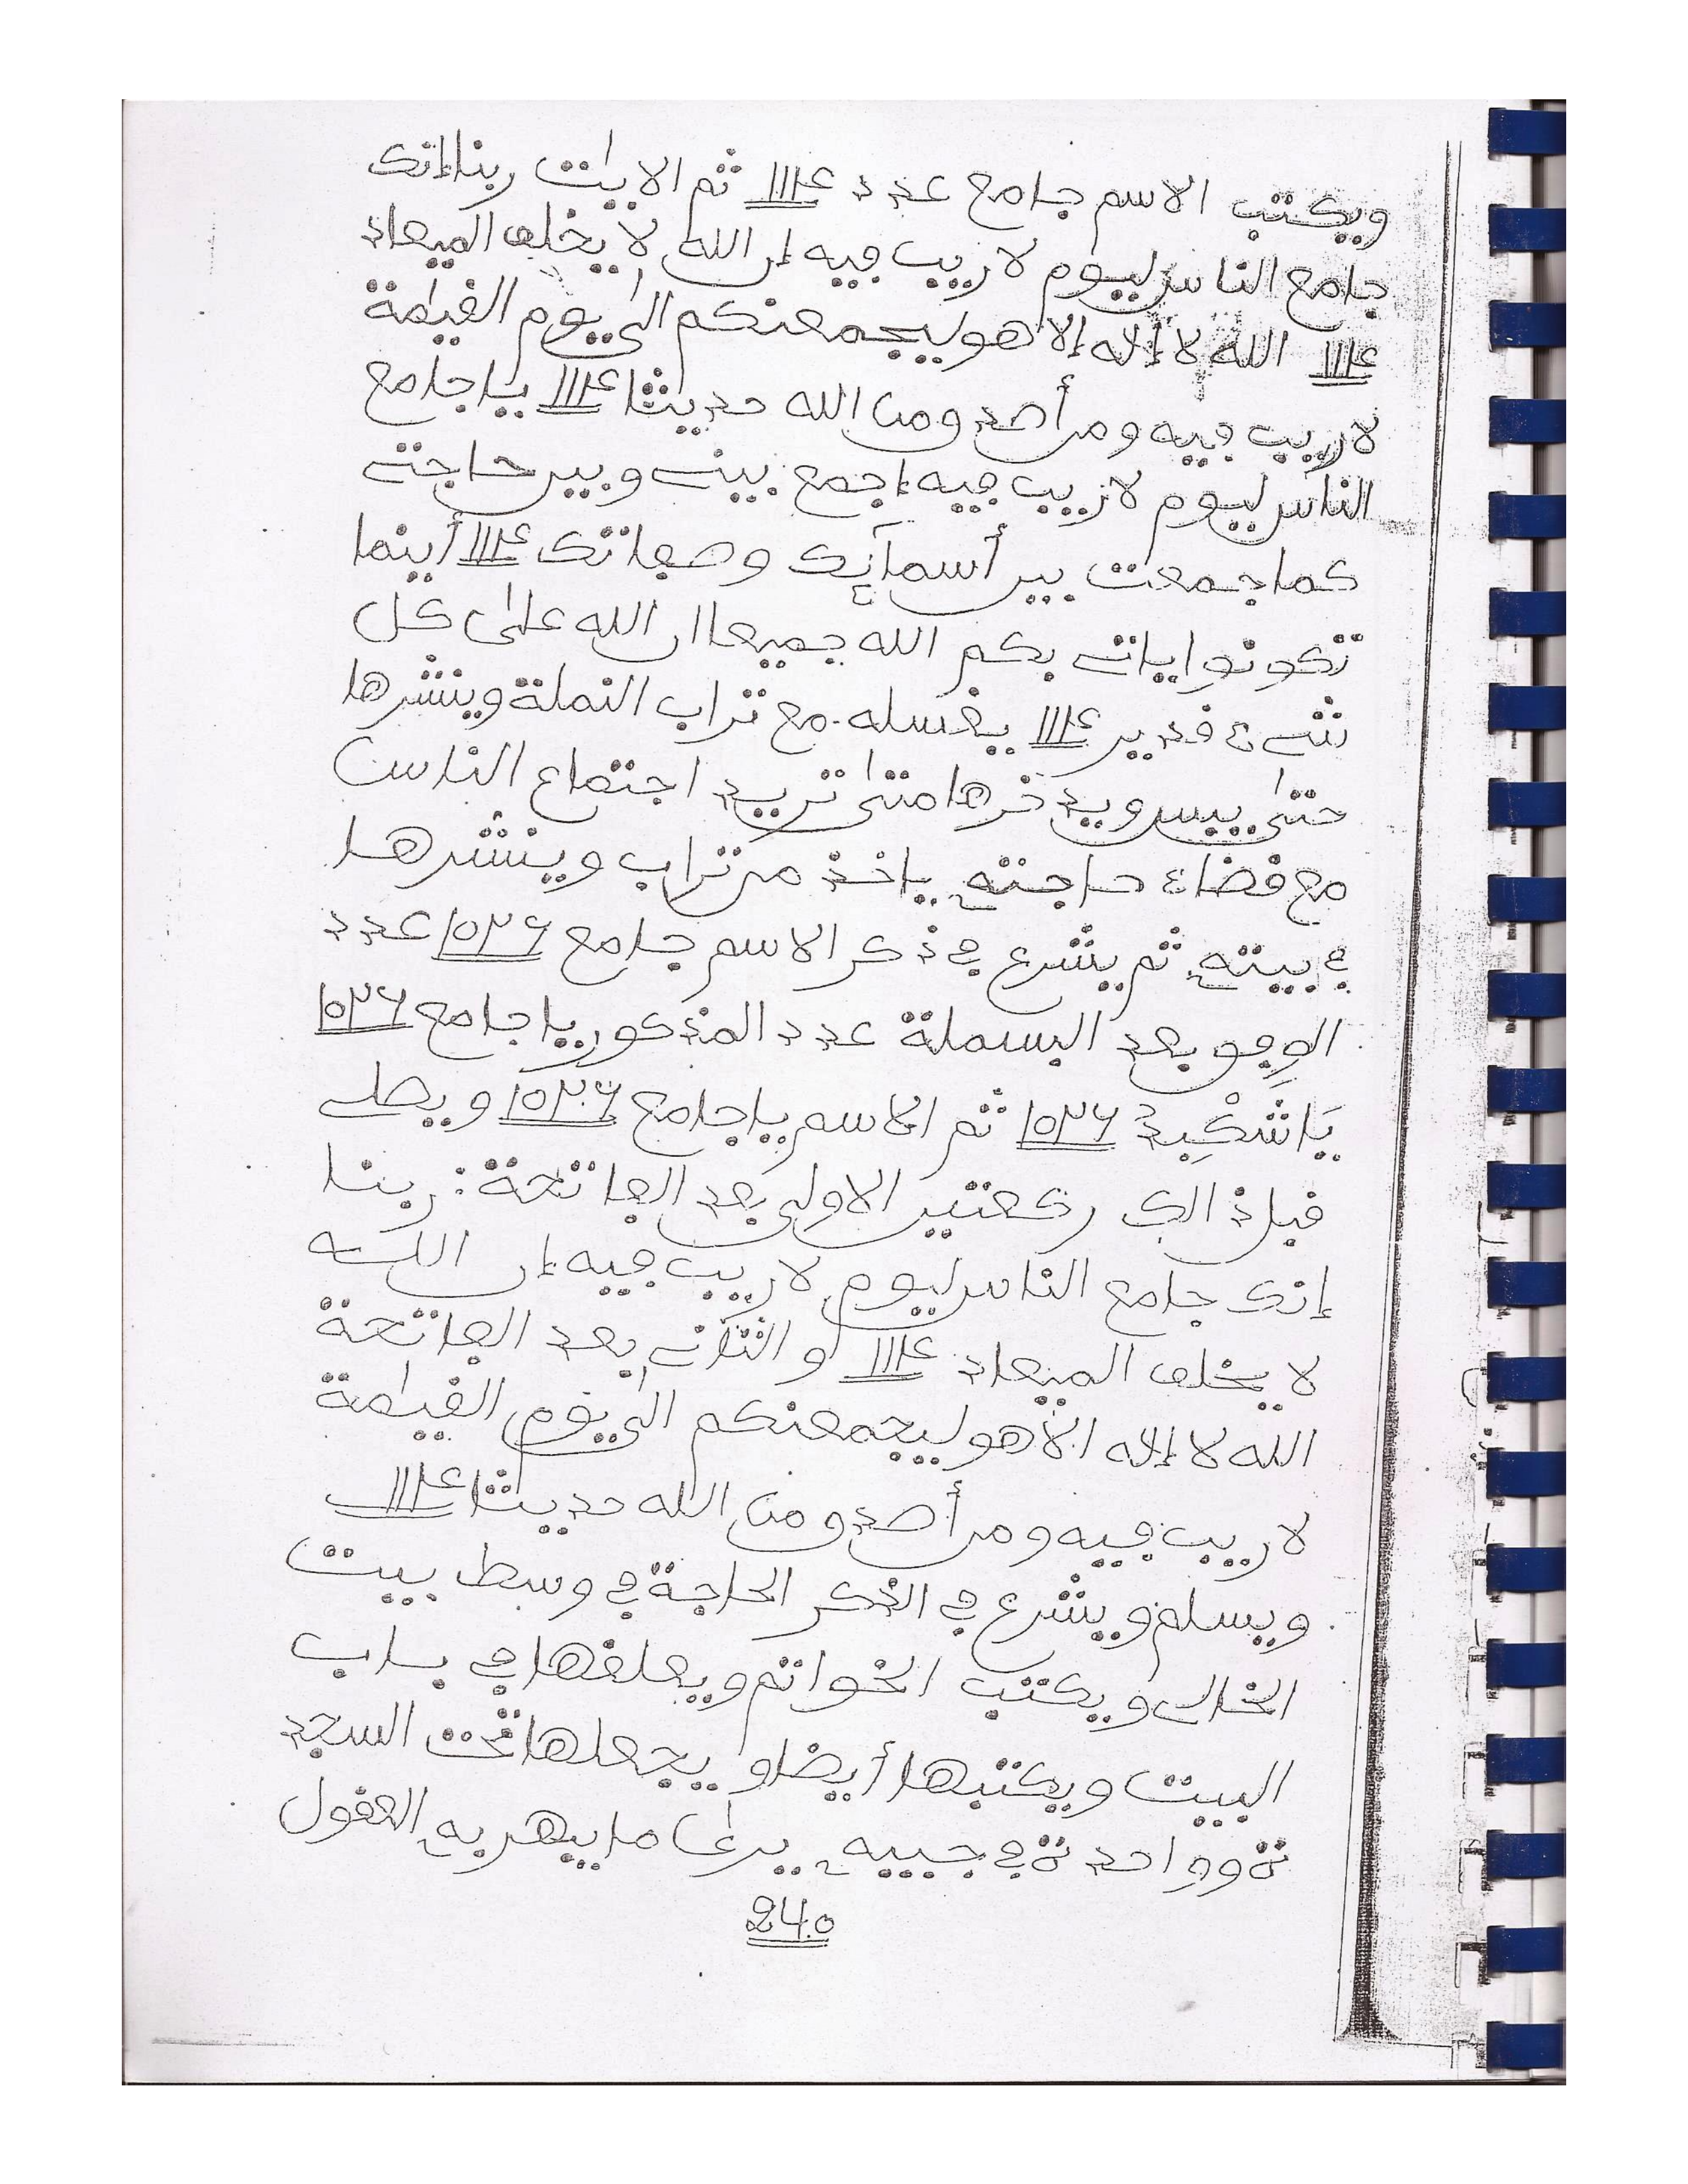 ويكتب الاسم جامع عدد ١١٤ ثم الايت ربنا إنك
جامع الناس ليوم لا ريب فيه إن الله لا يخلف الميعاد
١١٤ الله لا إله إلا هو ليجمعنكم الى يوم القيمة
لا ريب فيه ومن أصدق من الله حديثا ١١٤ يا جامع
الناس ليوم لا ريب فيه إجمع بينے وبين حاجتے
كما جمعت بين أسمآئك وصفاتك ١١٤ أينما
تكونوا يات بكم الله جميعا ان الله على كل
شےء قدير ١١٤ يغسله مع تراب النملة وينشرها
حتى ييبس ويدخرها متى تريد اجتماع الناس
مع قضاء حاجته ياخذ من تراب وينشرها
في بيته ثم يشرع في ذكر الاسم جامع ١٥٣٦ عدد
الوفق بعد البسملة عدد المذكور يا جامع ١٥٣٦
١٥٣٦ ثم الاسم يا جامع ١٥٣٦ ويصلے
قبل ذالك ركعتين الاولى بعد الفاتحة: ربنا
إنك جامع الناس ليوم لا ريب فيه إن اللـــه
لا يخلف الميعاد ١١٤ و الثانے بعد الفاتحة
الله لا إله الا هو ليجمعنكم الى يوم القيمة
لا ريب فيه ومن أصدق من الله حديثا ١١٤
ويسلم ويشرع في الذكر الحاجة في وسط بيت
الخالى ويكتب الخواتم ويعلقها في باب
البيت ويكتبها أيضا و يجعلها تحت السجد
ة وواحدة في جيبه يرى ما يبهر به العقول
240